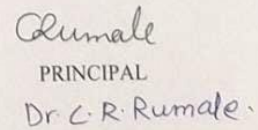 CRumale
PRINCIPAL
Dr. C. R. Rumale.